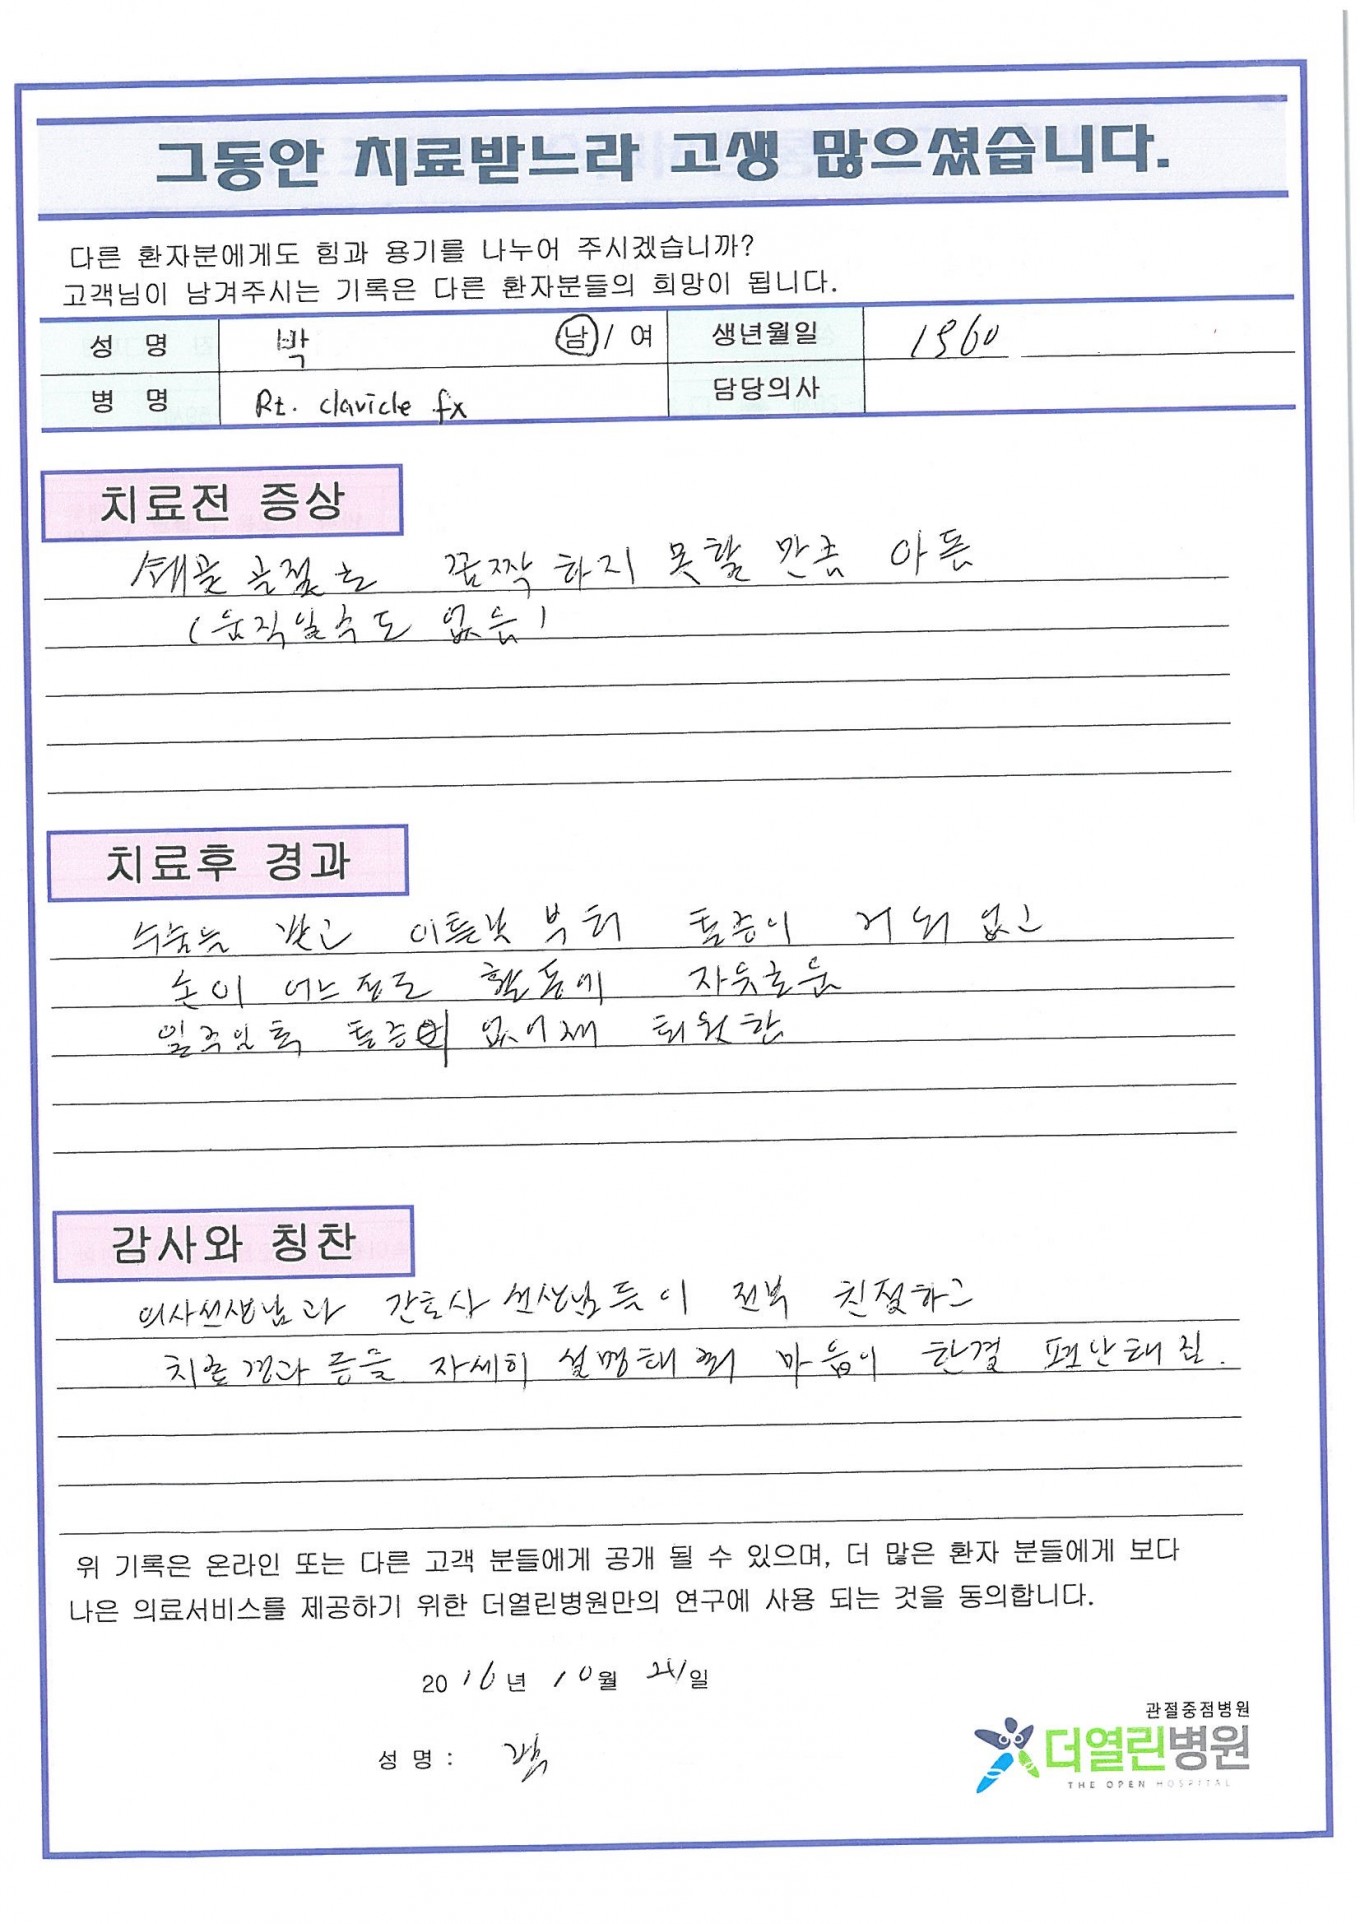 그동안 치료받느라 고생 많으셨습니다.
다른 환자분에게도 힘과 용기를 나누어 주시겠습니까?
고객님이 남겨주시는 기록은 다른 환자분들의 희망이 됩니다.
성 명 박 남 / 여 생년월일 1960
병 명 Rt. clavicle fx 담당의사
치료전 증상
쇄골 골절로 꼼짝 하지 못할 만큼 아픔
(움직일수도 없음)
치료후 경과
수술을 받고 이튿날 부터 통증이 거의 없고
손이 어느정도 활동에 자유로움
일주일 후 통증이 없어져 퇴원함
감사와 칭찬
의사선생님과 간호사 선생님들이 전부 친절하고
치료 경과 등을 자세히 설명해 줘 마음이 한결 편안해짐.
위 기록은 온라인 또는 다른 고객 분들에게 공개 될 수 있으며, 더 많은 환자 분들에게 보다
나은 의료서비스를 제공하기 위한 더열린병원만의 연구에 사용 되는 것을 동의합니다.
2016년 10월 21일
관절중점병원
성 명 : 박
더열린병원
THE OPEN HOSPITAL